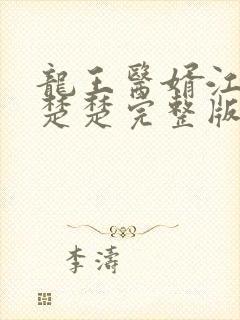 龍王醫婿江
楚楚完整版
李濤